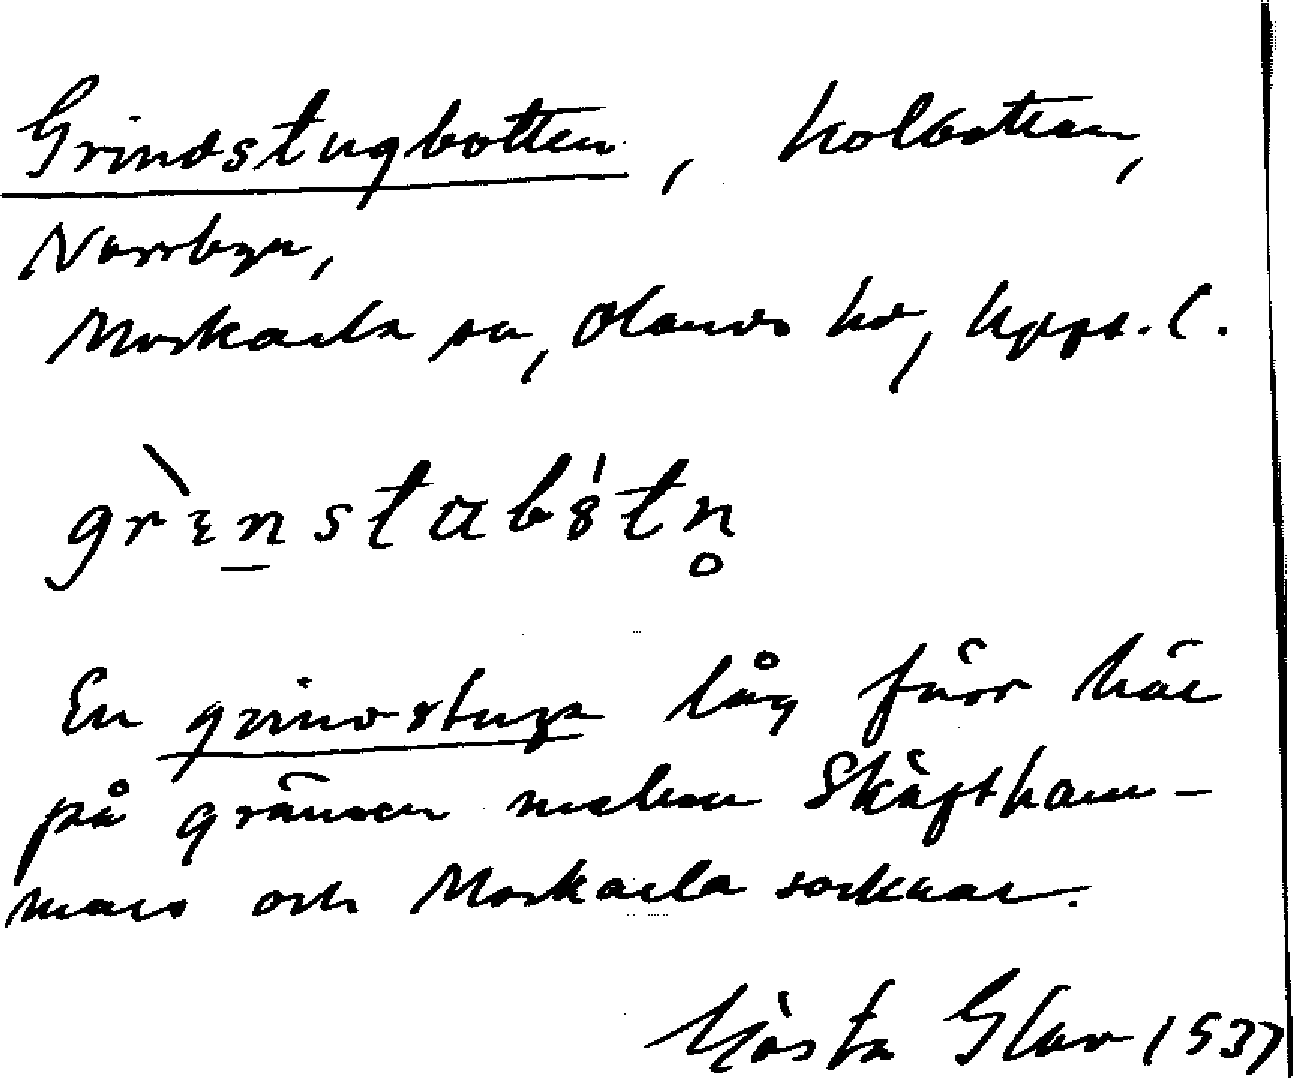 Grindstugbotten, kolbotten,
Norrbyn,
Morkarla sn, Olands hd, Upps. l.
grɛ̀nstabòtn̥
En grindstuga låg förr här
på gränsen mellan Skäftham-
mars och Morkarla socknar.
Gösta Glav 1937